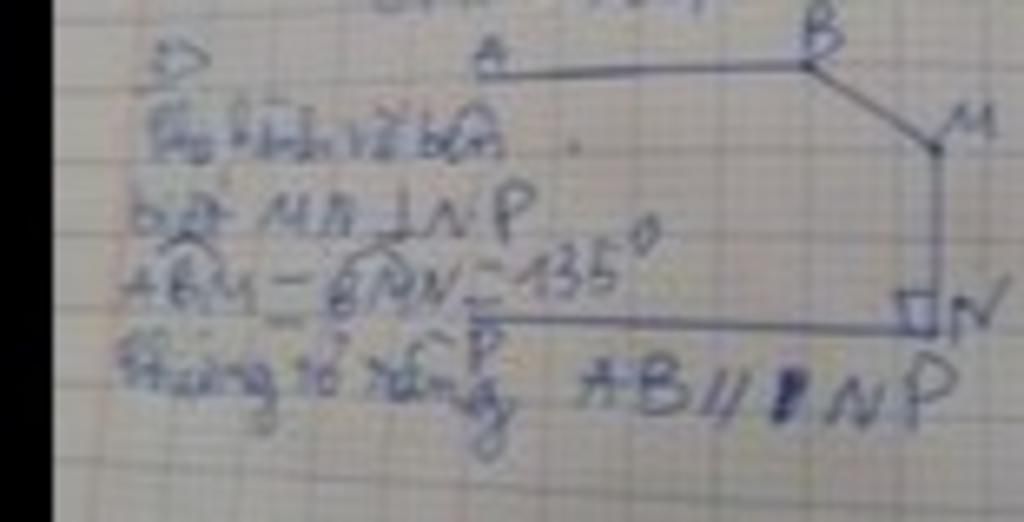 A
B
Cho hình vẽ bên
M
biết MN ⊥ NP
ABM = BMN = 135°
N
P
Chứng tỏ rằng AB // NP